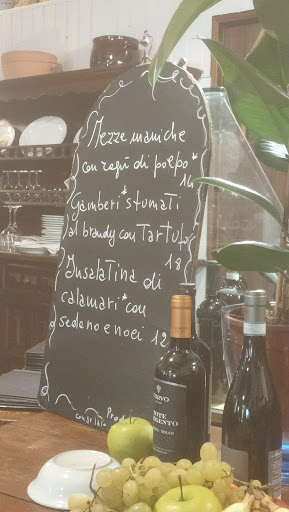 Mezze maniche
con ragù di polpo*
14
Gamberi* sfumati
al brandy con Tartufo
18
Insalatina di
calamari* con
sedano e noci 12
Prod
congelato